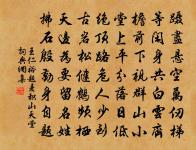 躡盡懸空萬仞梯
等閒身共白雲齊
簷前下視群山小
堂上平分落日低
絕頂路危人少到
古岩松健鶴頻棲
天邊為要留名姓
拂石殷勤身自題
王仁裕題麥積山天堂
詞典網集